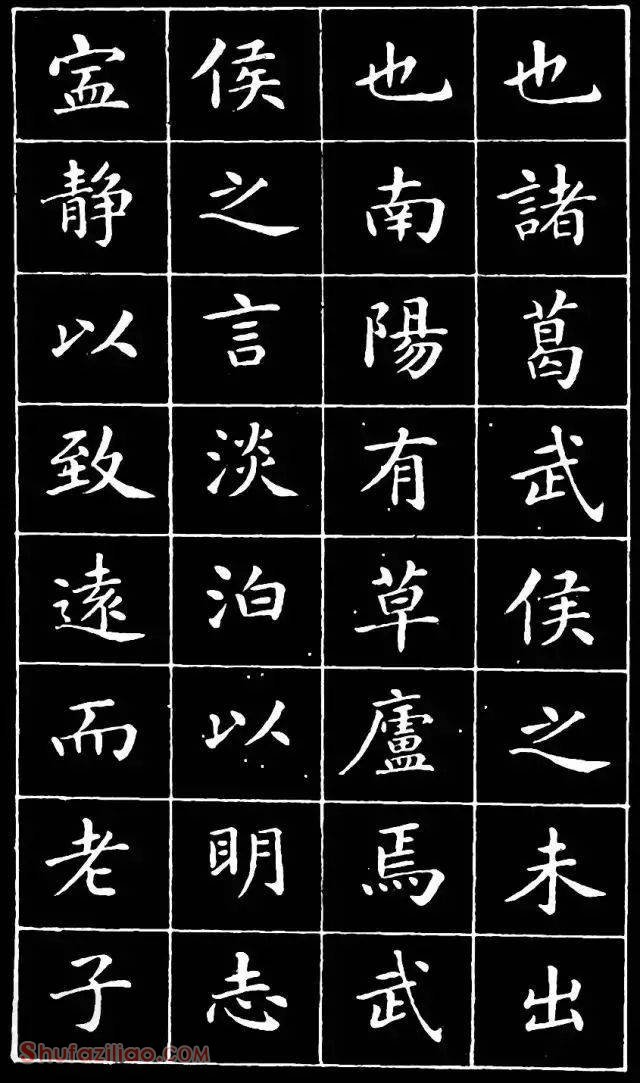 也諸葛武侯之未出
也南陽有草廬焉武
侯之言淡泊以明志
寍静以致遠而老子
Shufaziliao.COM